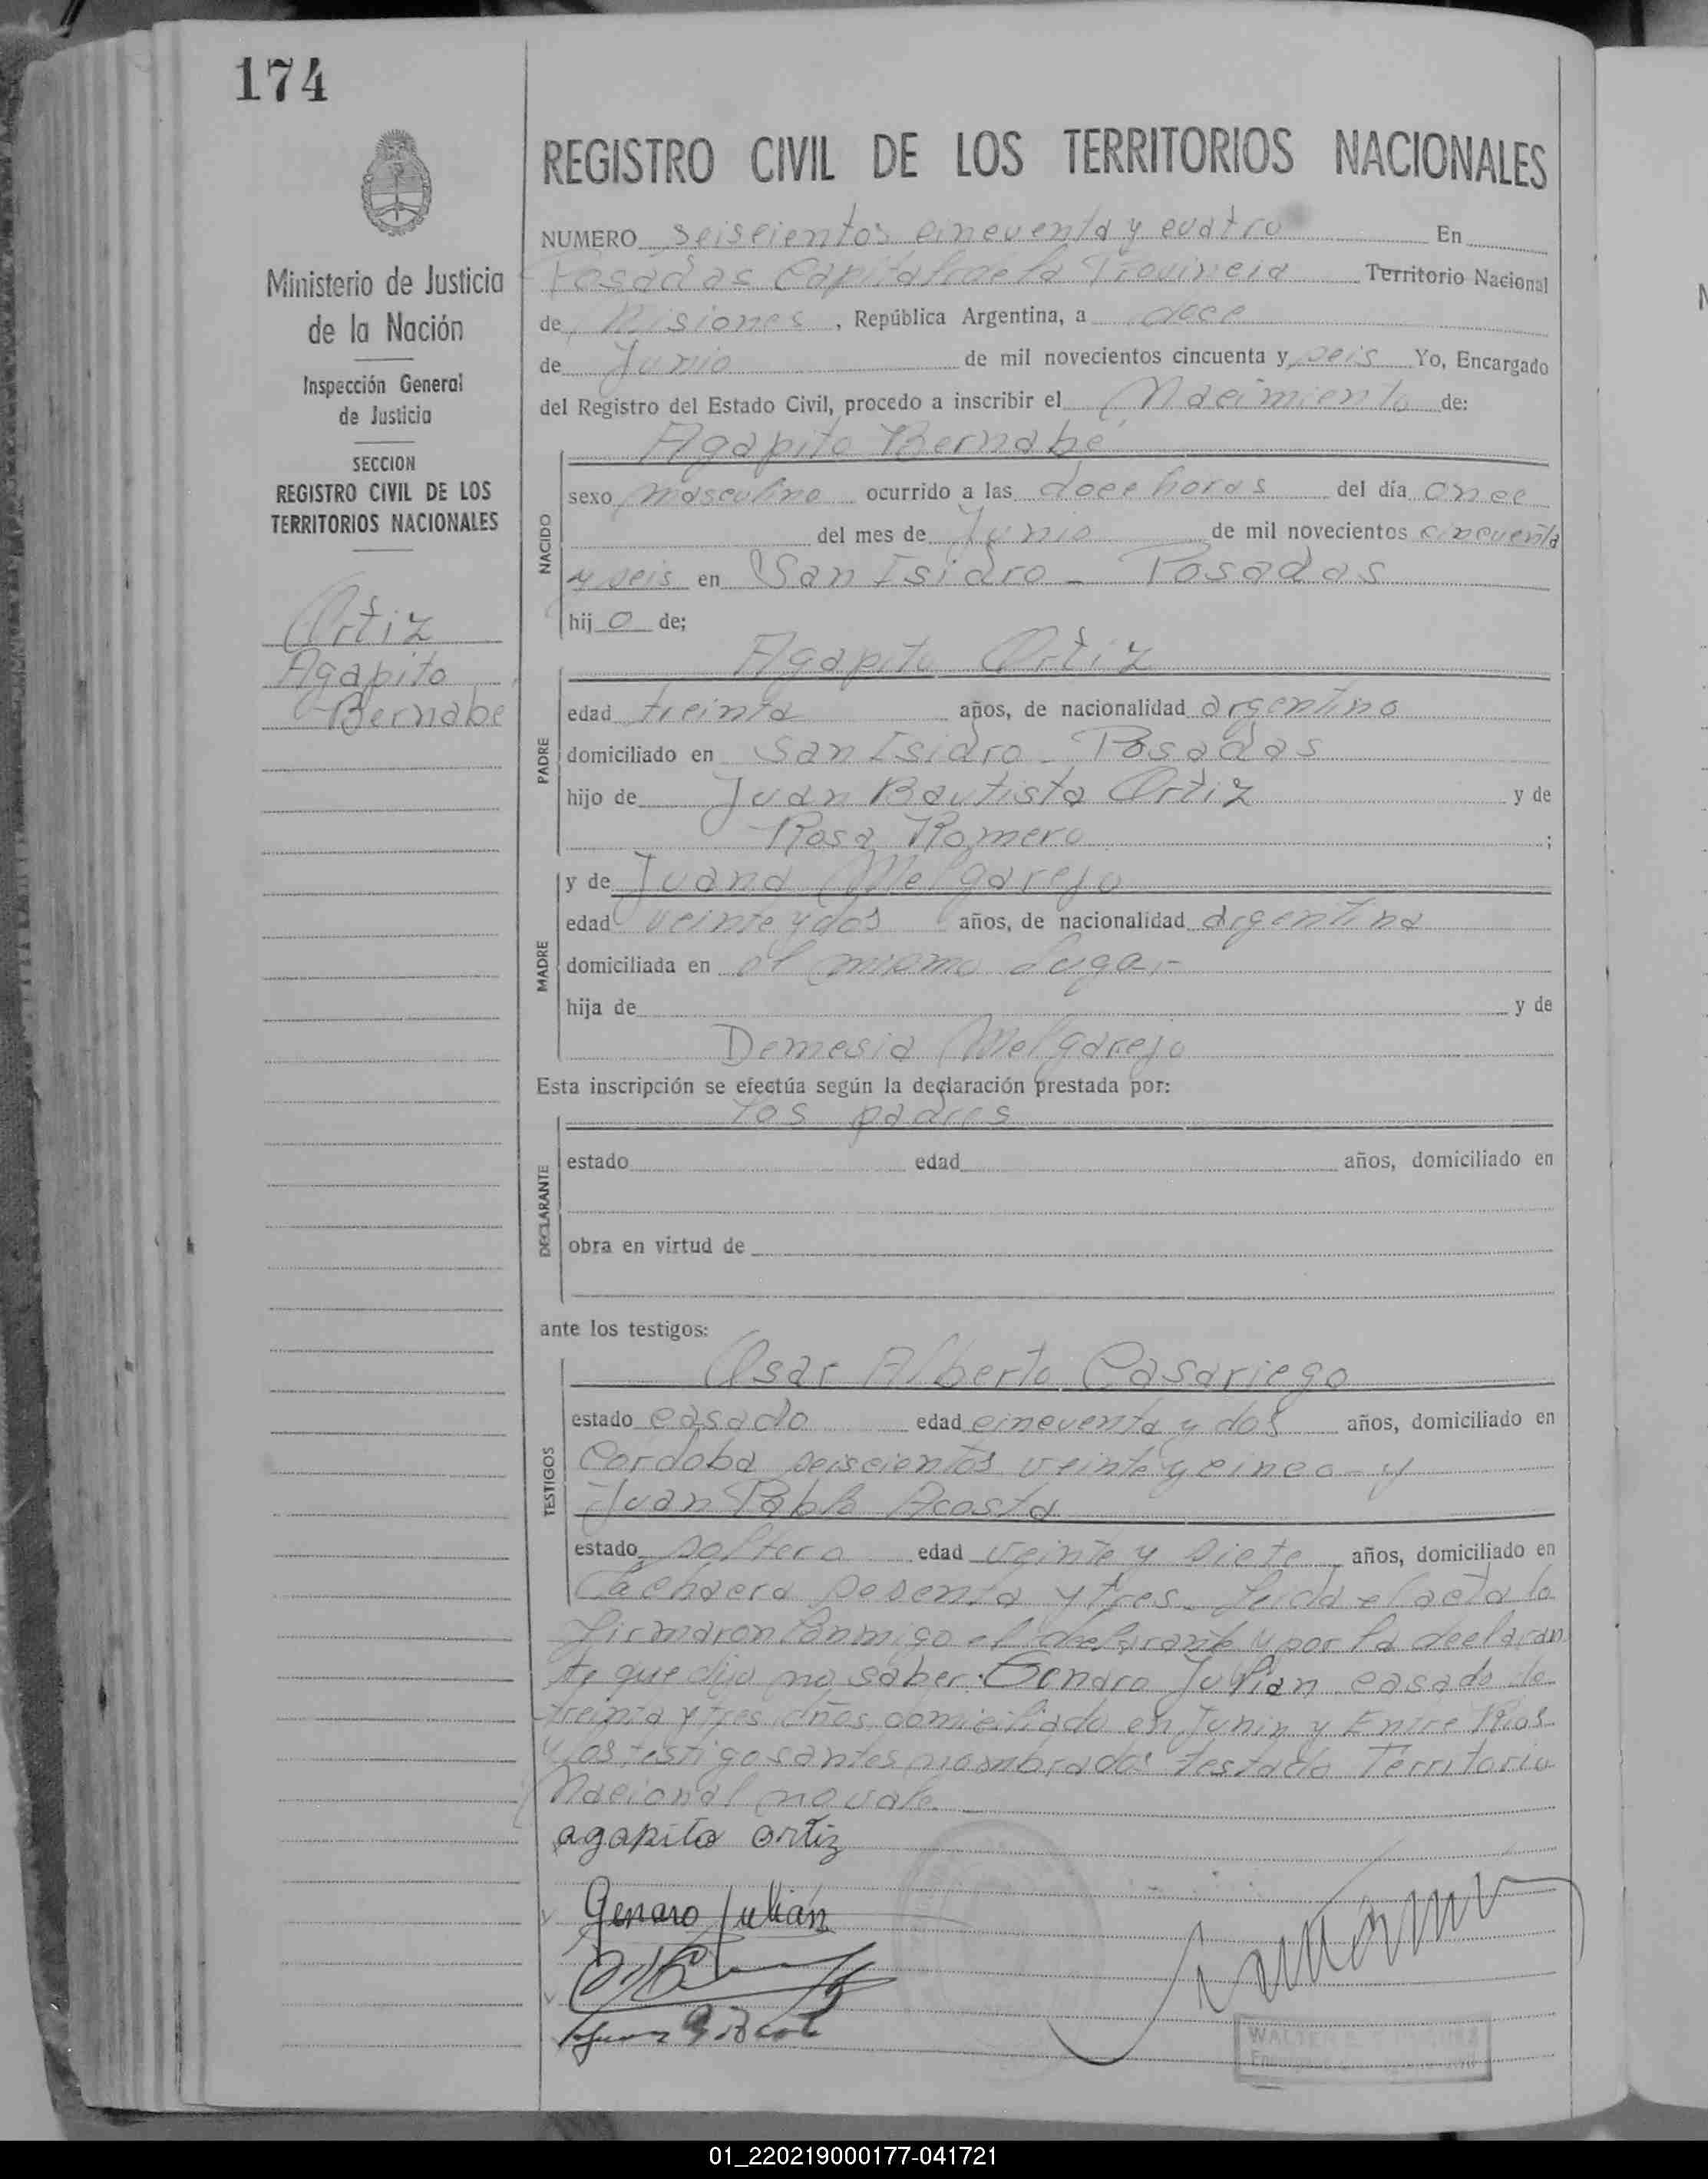 174
REGISTRO CIVIL DE LOS TERRITORIOS NACIONALES
Ministerio de Justicia
de la Nación
Inspección General
de Justicia
SECCION
REGISTRO CIVIL DE LOS
TERRITORIOS NACIONALES
Ortiz
Agapito
Bernabe
NUMERO seiscientos cincuenta y cuatro En
Posadas Capital de la Provincia Territorio Nacional
de Misiones, República Argentina, a doce
de Junio de mil novecientos cincuenta y seis Yo, Encargado
del Registro del Estado Civil, procedo a inscribir el Nacimiento de:
Agapito Bernabé
NACIDO
sexo masculino ocurrido a las doce horas del día once
del mes de Junio de mil novecientos cincuenta
y seis en San Isidro - Posadas
hijo de;
Agapito Ortiz
PADRE
edad treinta años, de nacionalidad argentino
domiciliado en San Isidro - Posadas
hijo de Juan Bautista Ortiz y de
Rosa Romero ;
y de Juana Melgarejo
MADRE
edad veinte y dos años, de nacionalidad argentina
domiciliada en el mismo lugar
hija de y de
Demesia Melgarejo
Esta inscripción se efectúa según la declaración prestada por:
los padres
DECLARANTE
estado edad años, domiciliado en
obra en virtud de
ante los testigos:
Osar Alberto Casariego
TESTIGOS
estado casado edad cincuenta y dos años, domiciliado en
Cordoba seiscientos veinte y cinco - y
Juan Pablo Acosta
estado soltero edad veinte y siete años, domiciliado en
sesenta y tres. Leida el acta la
firmaron conmigo el declarante y por la declaran
te que dijo no saber. Genaro Julian casado de
treinta y tres años domiciliado en Junin y Entre Rios
y los testigos antes nombrados testado Territorio
Nacional no vale.
agapito ortiz
Genaro Julián
WALTER
01_220219000177-041721